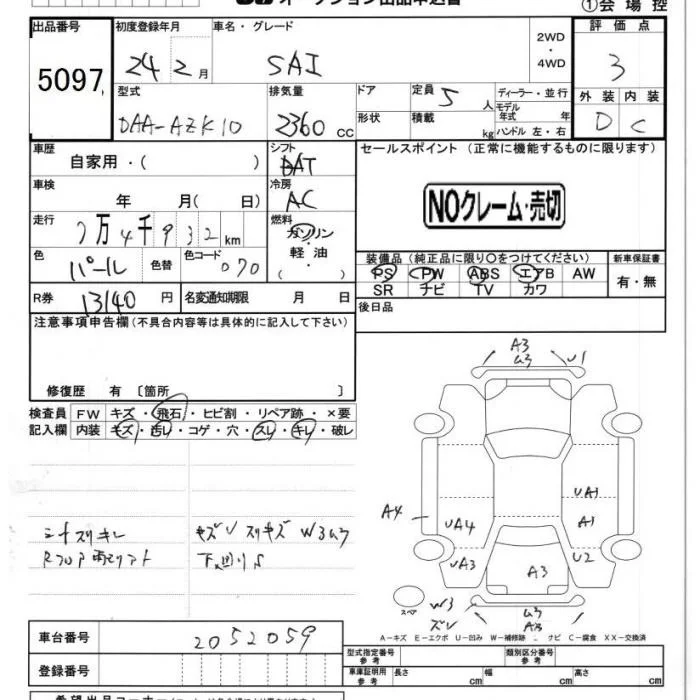 ①会場控
出品番号 初度登録年月 車名・グレード 2WD・4WD 評価点
5097 24年2月 SAI 3
型式 排気量 ドア 定員 5人 ディーラー・並行 外装 内装
DAA-AZK10 2360cc 形状 積載 kg モデル年式 年 ハンドル 左・右 D C
車歴 シフト セールスポイント (正常に機能するものに限ります)
自家用・( ) DAT
車検 冷房
年 月( 日) AC NOクレーム・売切
走行 燃料
7万4千932km ガソリン
軽油
( ・ )
色 色替 色コード 装備品(純正品に限り○をつけてください) 新車保証書
パール 070 PS PW ABS エアB AW 有・無
SR ナビ TV カワ
R券 13140円 名変通知期限 月 日 後日品
注意事項申告欄(不具合内容等は具体的に記入して下さい)
修復歴 有 〔箇所 〕
検査員 FW キズ・飛石・ヒビ割・リペア跡・×要
記入欄 内装 キズ・汚レ・コゲ・穴・スレ・キレ・破レ
A3
U1
UA1
A4 UA4 A1
UA3 A3 U2
スペア W3
A3
A-キズ E-エクボ U-凹み W-補修跡 C-腐食 XX-交換済
車台番号 2052059
登録番号
型式指定番号 参考 類別区分番号 参考
車庫証明用 参考 長さ cm 幅 cm 高さ cm